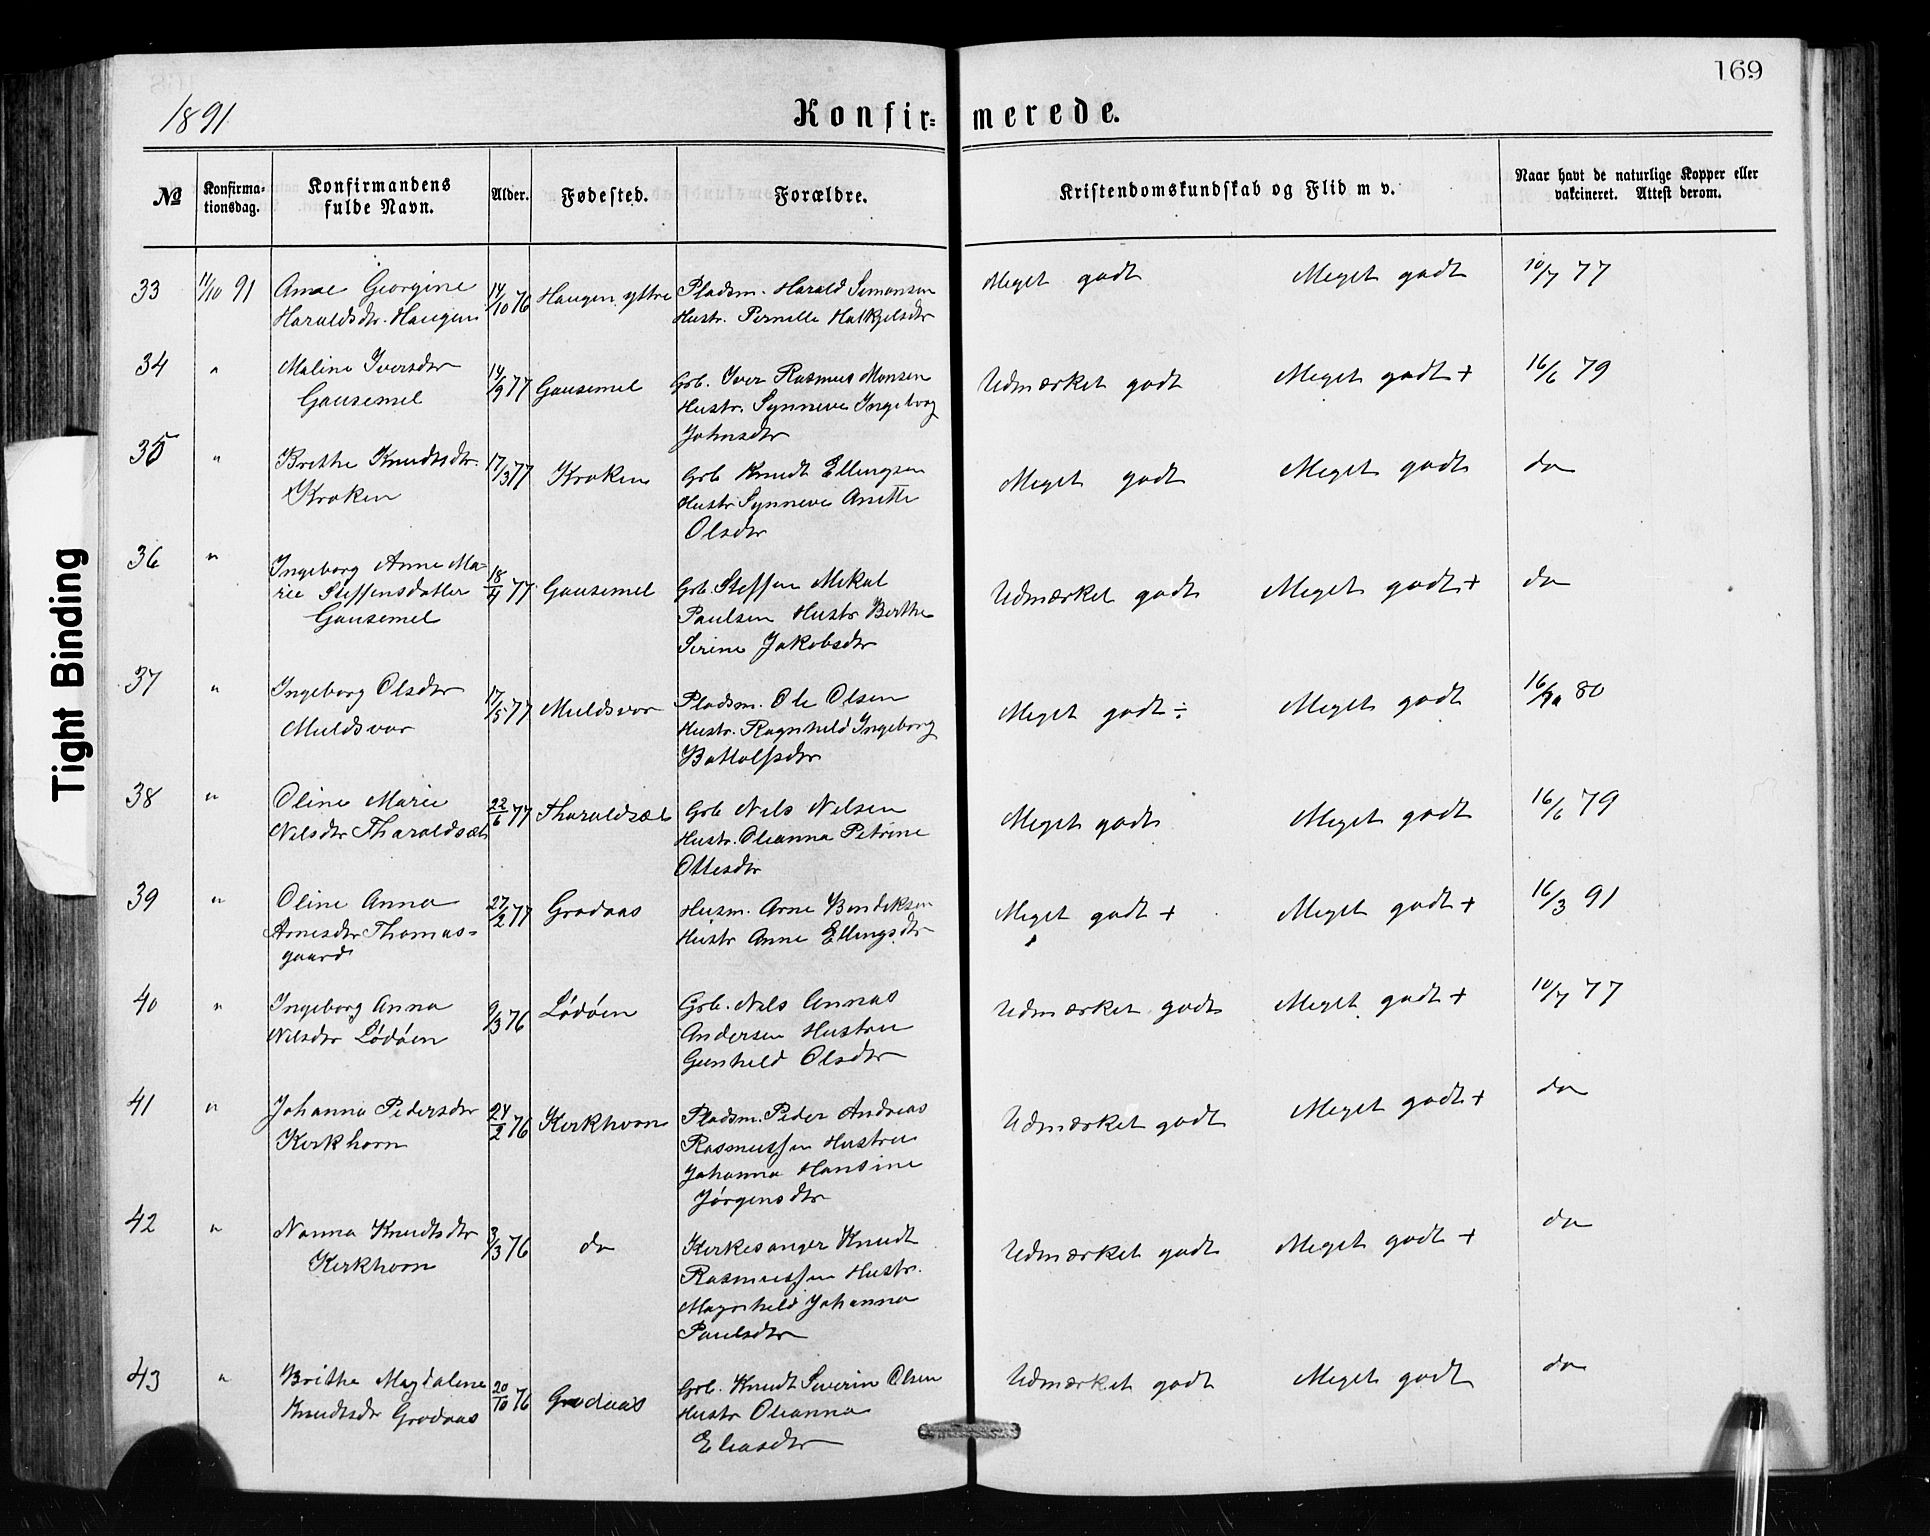 169
1891
Konfir= merede.
№
Konfirma-
tionsdag.
Konfirmandens
fulde Navn.
Alder.
Fødested.
Forældre.
Kristendomskundskab og Flid m v.
Naar havt de naturlige Kopper eller
vakcineret. Attest derom.
33 11/10 91 Anne Georgine 14/10 76 Haugen yttre Pladsm. Harald Simonsen Meget godt Meget godt 10/7 77
Haraldsdtr. Haugen Hustr. Pernille Halkjelsdtr
34 " Maline Iversdtr 14/9 77 Gausemel Grb. Iver Rasmus Monsen Udmærket godt Meget godt + 16/6 79
Gausemel Hustr. Synneve Ingeborg
Johnsdtr
35 " Brithe Knudtsdtr. 17/3 77 Kroken Grb Knudt Ellingsen Meget godt Meget godt do
Kroken Hustr Synneve Anette
Olsdtr
36 " Ingeborg Anne Ma-
rie Steffensdatter 18/4 77 Gausemel Grb. Steffen Mikal Udmærket godt Meget godt + do
Gausemel Paulsen Hustr Berthe
Sirine Jakobsdtr
37 " Ingeborg Olsdtr 17/5 77 Muldsvor Pladsm. Ole Olsen Meget godt ÷ Meget godt 80
Muldsvor Hustr. Ragnhild Ingeborg
Battolfsdtr
38 " Oline Marie 22/6 77 Tharaldsæt Grb Nils Nilsen Meget godt Meget godt 16/6 79
Nilsdtr Tharaldsæt Hustr. Oleanna Petrine
Ottesdtr
39 " Oline Anna 27/2 77 Grodaas Husm. Arne Bendiksen Meget godt + Meget godt + 16/3 91
Arnesdtr Thomas- Hustr Anne Ellingsdtr
gaard
40 " Ingeborg Anna 9/3 76 Lødøen Grb. Nils Annas Udmærket godt Meget godt + 10/7 77
Nilsdtr Lødøen Andersen Hustru
Gunhild Olsdtr
41 " Johanna Pedersdtr 24/2 76 Kirkhorn Pladsm. Peder Andreas Udmærket godt Meget godt + do
Kirkhorn Rasmussen Hustru
Johanna Hansine
Jørgensdtr
42 " Nanna Knudtsdtr 3/3 76 do Kirkesanger Knudt Udmærket godt Meget godt + do
Kirkhorn Rasmussen Hustr.
Magnhild Johanna
Paulsdtr
43 " Brithe Magdalene 20/10 76 Grodaas Grb. Knudt Severin Olsen Udmærket godt Meget godt do
Knudtsdtr Grodaas Hustr Oleanna
Eliasdtr
Tight Binding